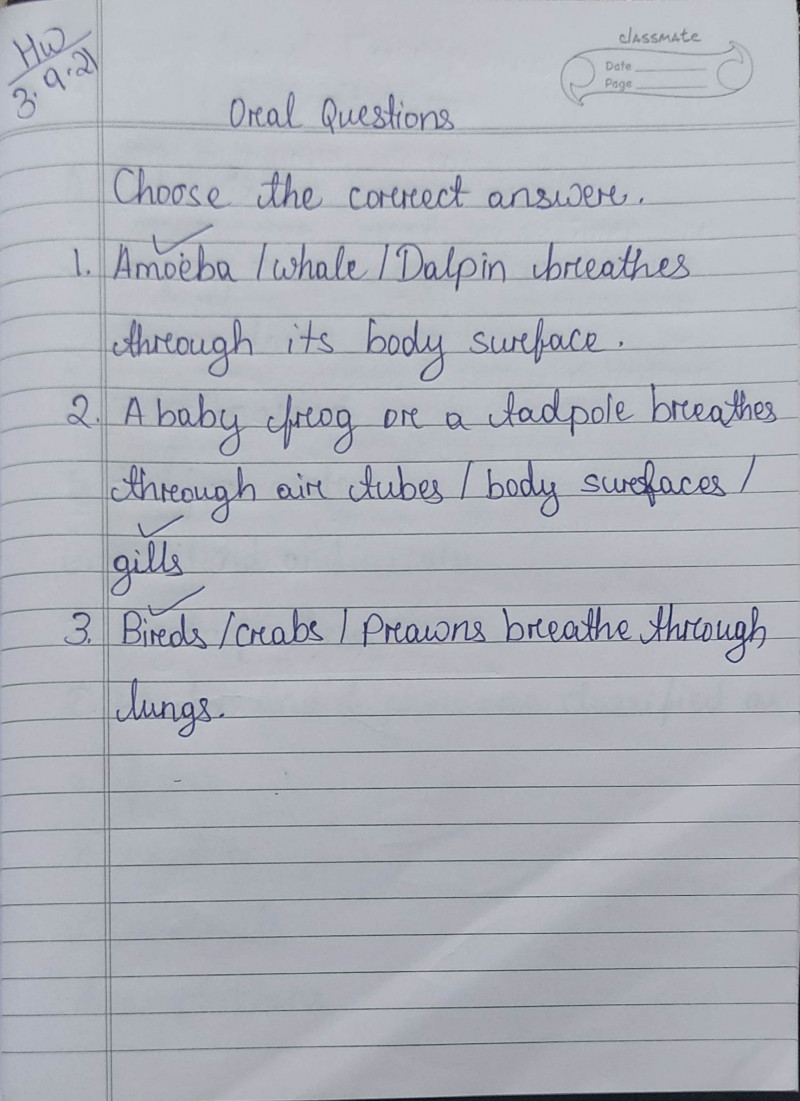 HW
3.9.21
classmate
Date
Page
Oral Questions
Choose the correct answer.
1. Amoeba / whale / Dalpin breathes
through its body surface.
2. A baby frog or a tadpole breathes
through air tubes / body surfaces /
gills
3. Birds / crabs / Prawns breathe through
lungs.